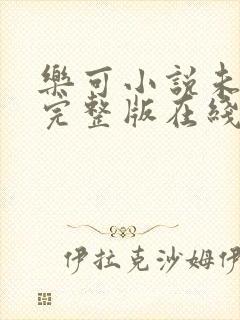 樂可小說未
完整版在綫
伊拉克沙姆伊